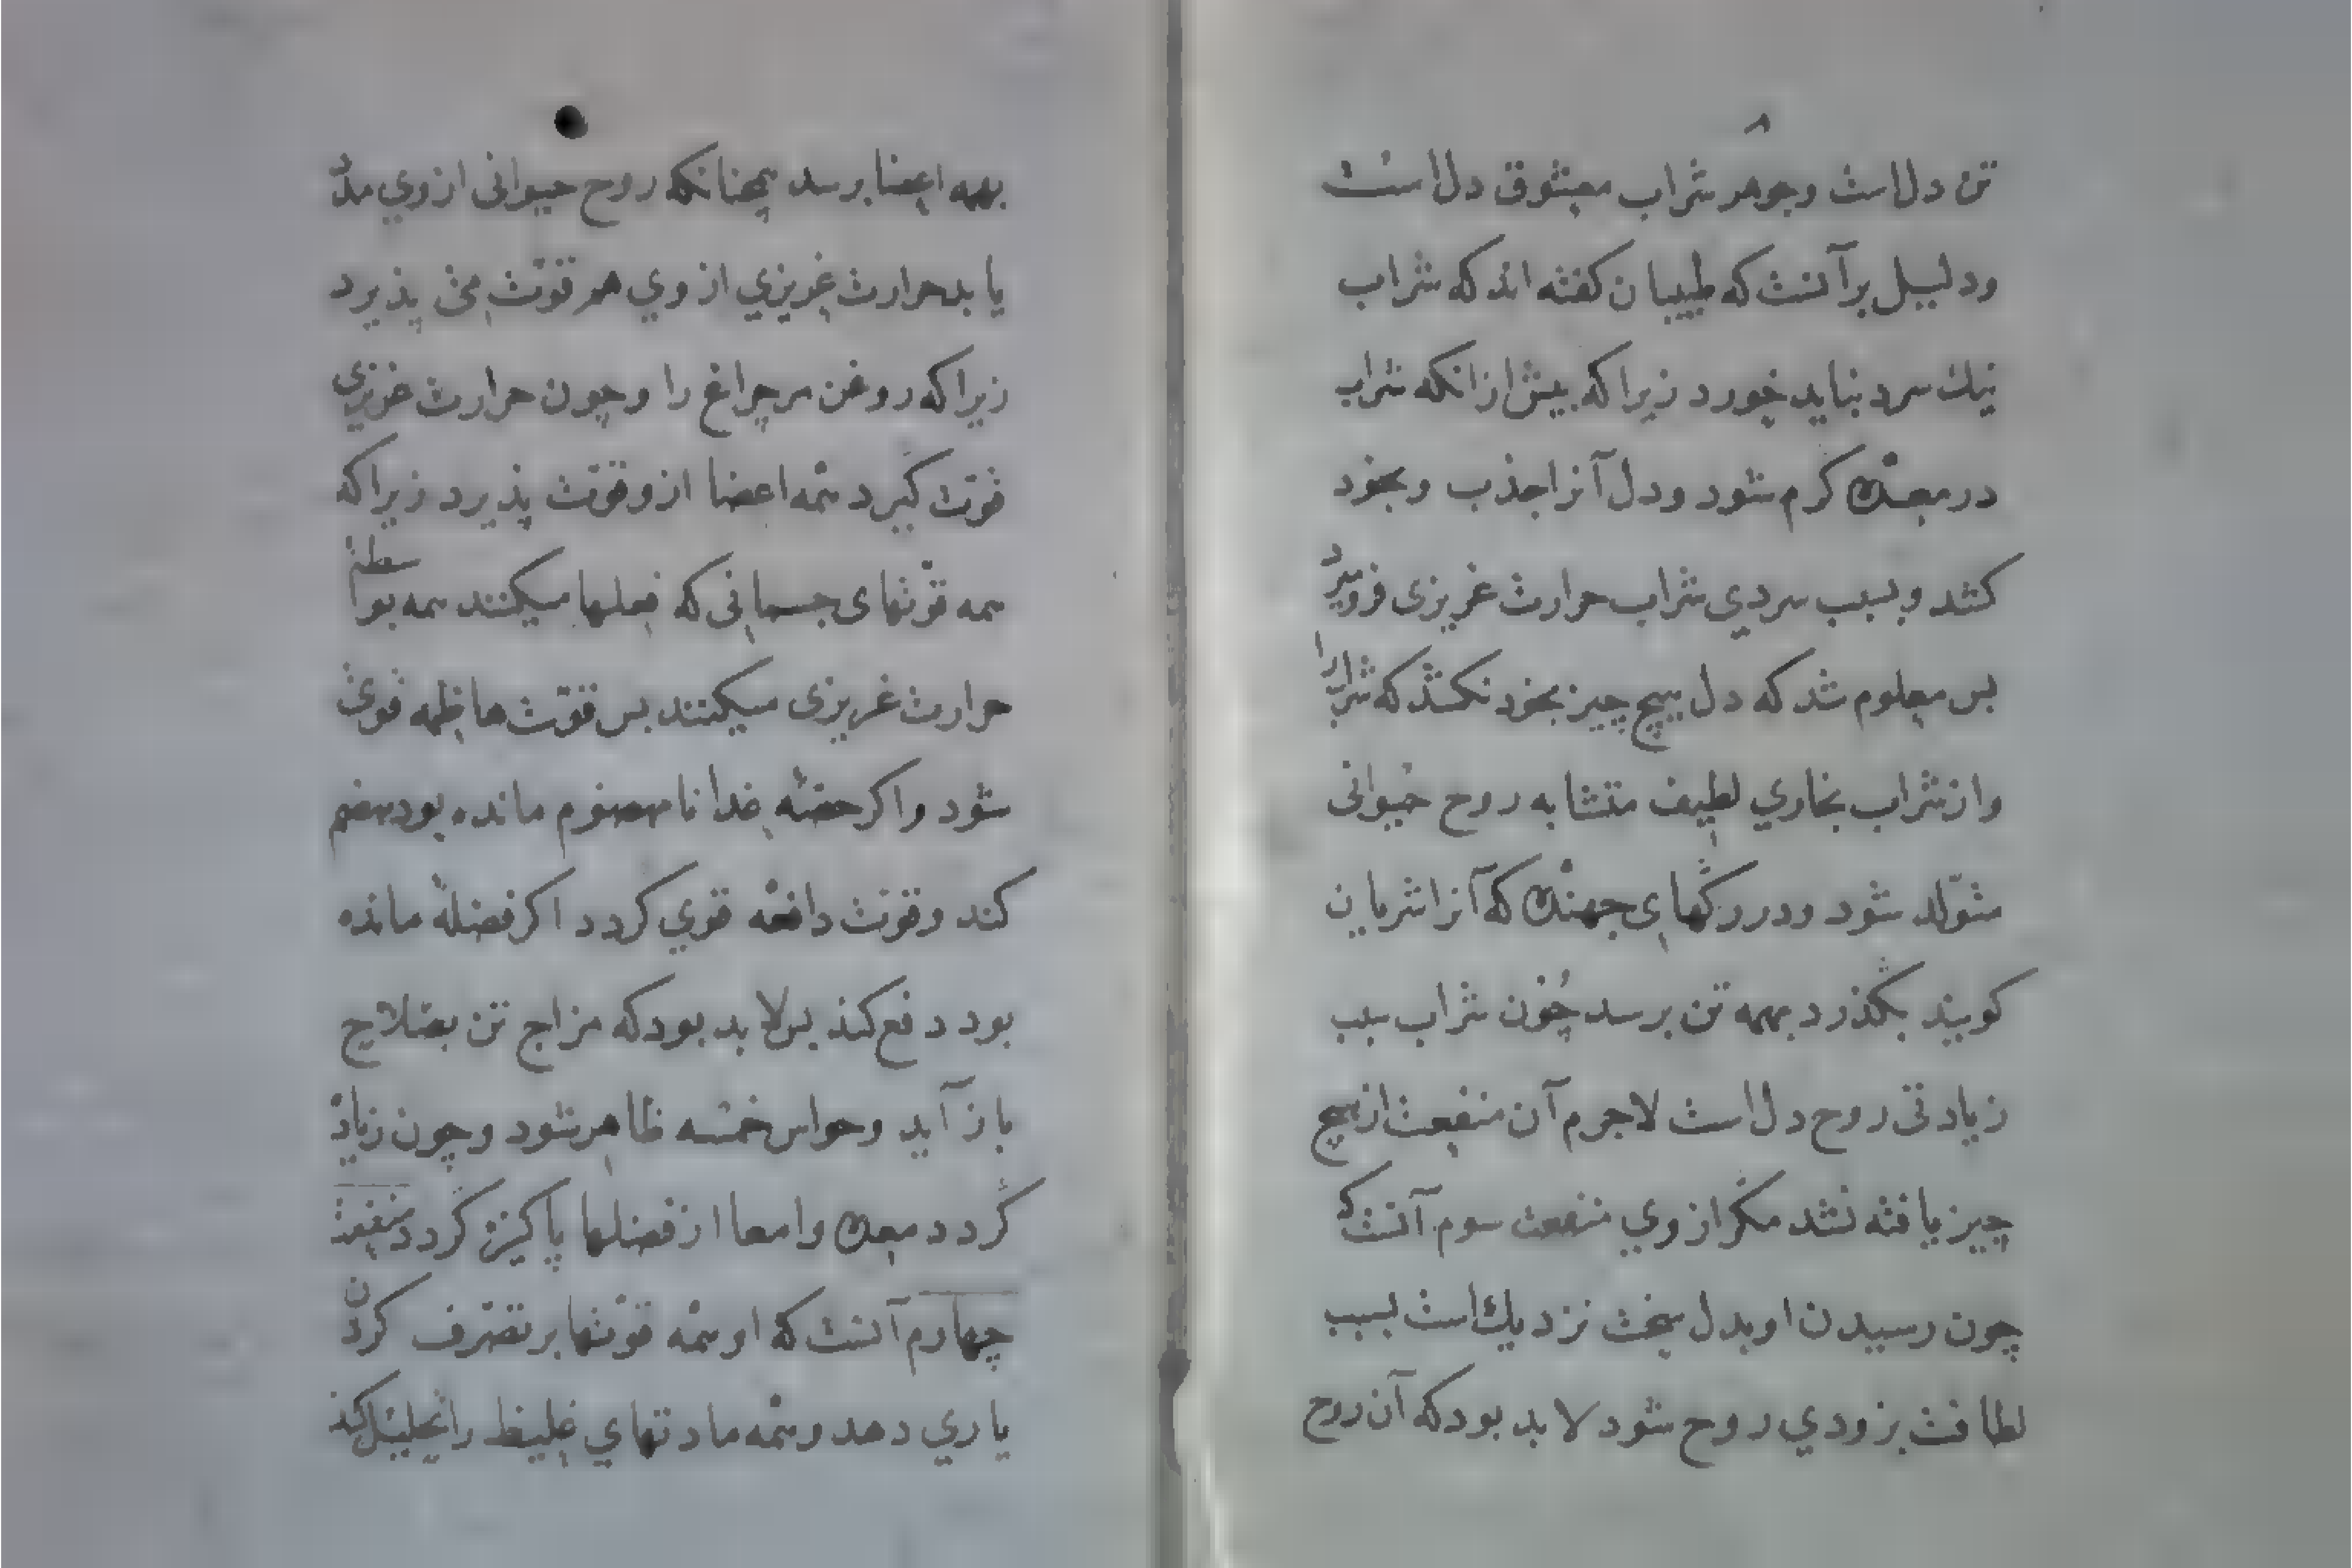 تن دل است وجوهر شراب معشوق دل است
ودلیل برآنست که طبیبان کفته اند که شراب
نیك سرد نباید خورد زیرا که بیش ازانکه شراب
در معده کرم شود ودل آنرا جذب و بخود
کشد و بسبب سردي شراب حرارت غریزی فرو میرد
بس معلوم شد که دل بهیچ چیز بخود نکشد که شراب را
واز شراب بخاري لطیف متشابه روح حیوانی
متولّد شود ودر رکهای جهنده که آنرا شریان
کویند بکذرد بهمه تن برسد چون شراب سبب
زیادتی روح دل است لاجرم آن منفعت از هیچ
چیز یافته نشد مکر از وي منفعت سوم آنست که
چون رسیدن او بدل سخت نزدیك است بسبب
لطافت بزودي روح شود لا بد بود که آن روح
بهمه اعضا برسد همچنانکه روح حیوانی از وي مدد
یابد حرارت غریزي از وي هم قوّت می پذیرد
زیرا که روغن مر چراغ را وچون حرارت غریزی
قوّت کیرد همه اعضا ازو قوّت پذیرد زیرا که
همه قوّتهای جسمانی که فعلها میکنند همه بواسطهٔ
حرارت غریزی میکنند بس قوّت هاظمه قوی
شود واکر حصّهٔ غدا نامهضوم مانده بود هضم
کند وقوت دافعه قوي کردد اکر فضلهٔ مانده
بود دفع کند بس لا بد بود که مزاج تن بصلاح
باز آید وحواس خمسه ظاهر شود وچون زیاد
کردد معده وامعا از فضلها پاکیزه کردد منفعت
چهارم آنست که او همه قوّتها بر تصرّف کردن
یاري دهد وهمه مادتهاي غلیظ را تحلیل کند